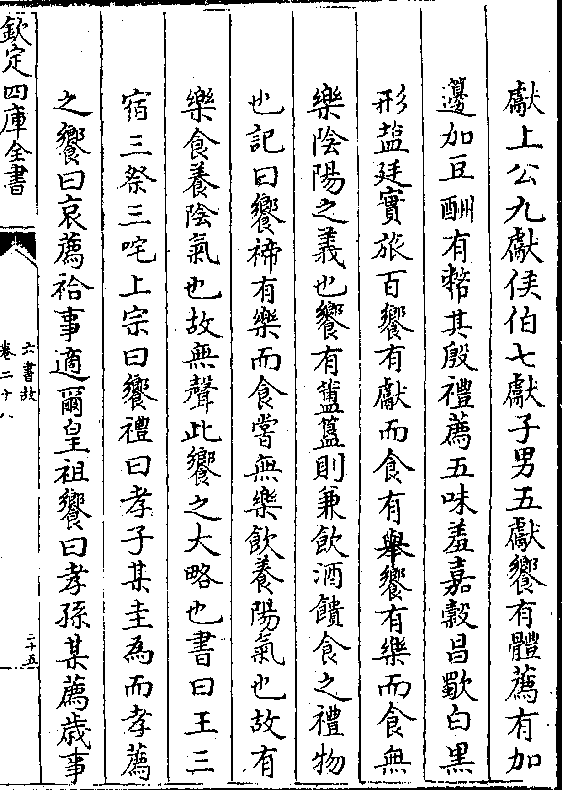 獻上公九獻侯伯七獻子男五獻饗有體薦有加
籩加豆酬有幣其殷禮薦五味羞嘉穀昌歜白黑
形鹽廷實旅百饗有獻而食有舉饗有樂而食無
樂陰陽之義也饗有簠簋則兼飲酒饋食之禮物
也記曰饗禘有樂而食嘗無樂飲養陽氣也故有
樂食養陰氣也故無聲此饗之大略也書曰王三
宿三祭三咤上宗曰饗禮曰孝子某圭為而孝薦
之饗曰哀薦祫事適爾皇祖饗曰孝孫某薦歳事
欽定四庫全書
六書故
卷二十八
二十五